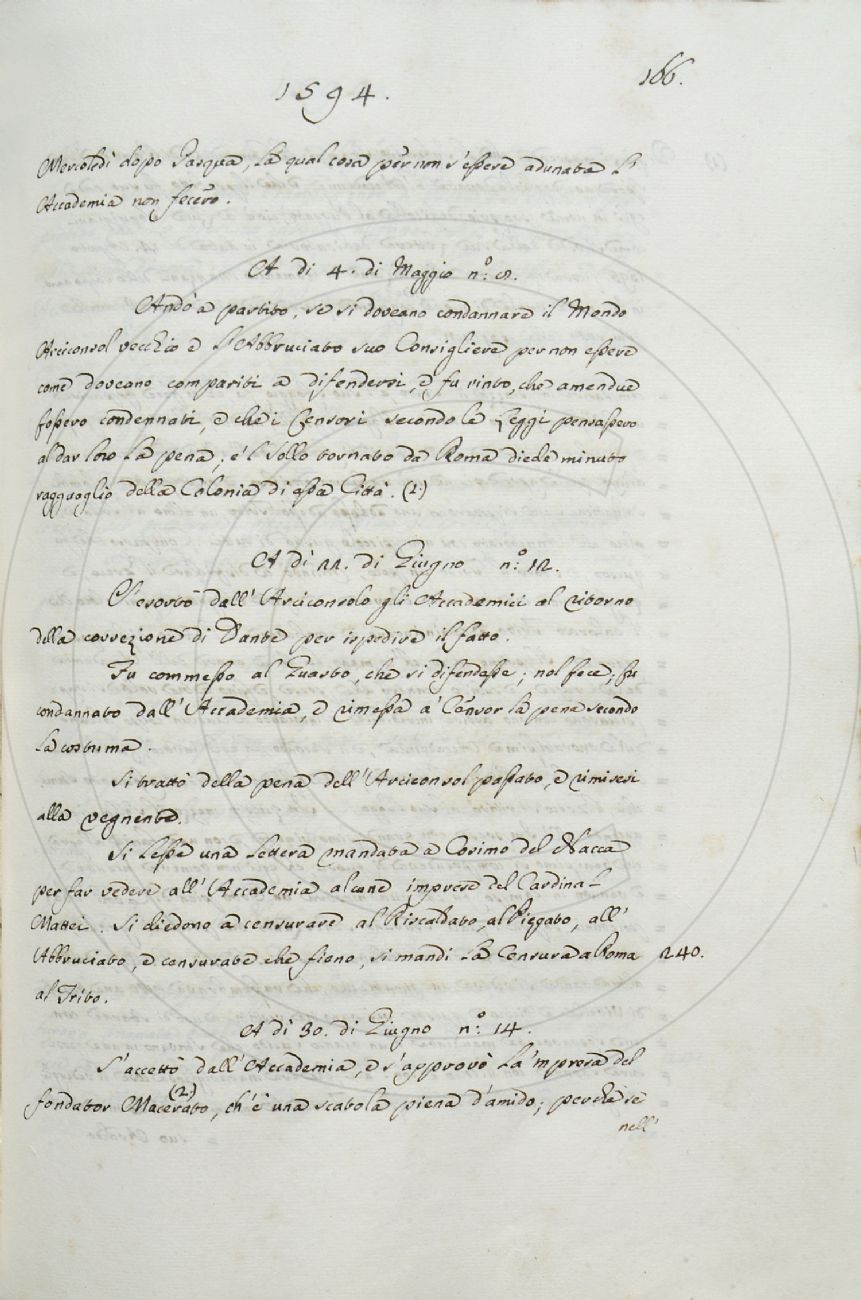 166.
1594.
Mercoledì dopo Pasqua, la qual cosa per non s'essere adunata l'
Accademia non fecero.
A dì 4. di Maggio n.º 8.
Andò a partito, se si doveano condannare il Mondo
Arciconsol vecchio e l'Abbruciato suo Consigliere per non essere
come doveano compariti a difendersi, e fu vinto, che amendue
fossero condennati, e che i Censori secondo le Leggi pensassero
al dar loro la pena; e'l Sollo tornato da Roma diede minuto
ragguaglio della Colonia di essa Città. (1.)
A dì 22. di Giugno n.º 12.
S'esortò dall'Arciconsolo gli Accademici al ritorno
della correzione di Dante per ispedire il fatto.
Fu commesso al Guasto, che si difendesse; nol fece; fu
condannato dall'Accademia, e rimessa a' Censor la pena secondo
la costuma.
Si trattò della pena dell'Arciconsol passato, e rimisesi
alla vegnente.
Si lesse una lettera mandata a Cosimo del Nacca
per far vedere all'Accademia alcune imprese del Cardinal
Mattei. Si diedono a censurare al Riscaldato, al Piegato, all'
Abbruciato, e censurate che sieno, si mandi la Censura a Roma 240.
al Trito.
A dì 30. di Giugno n.º 14.
S'accettò dall'Accademia, e s'approvò la 'mpresa del
fondator Macerato, (2.) ch'è una scatola piena d'amido; perchè se
nell'